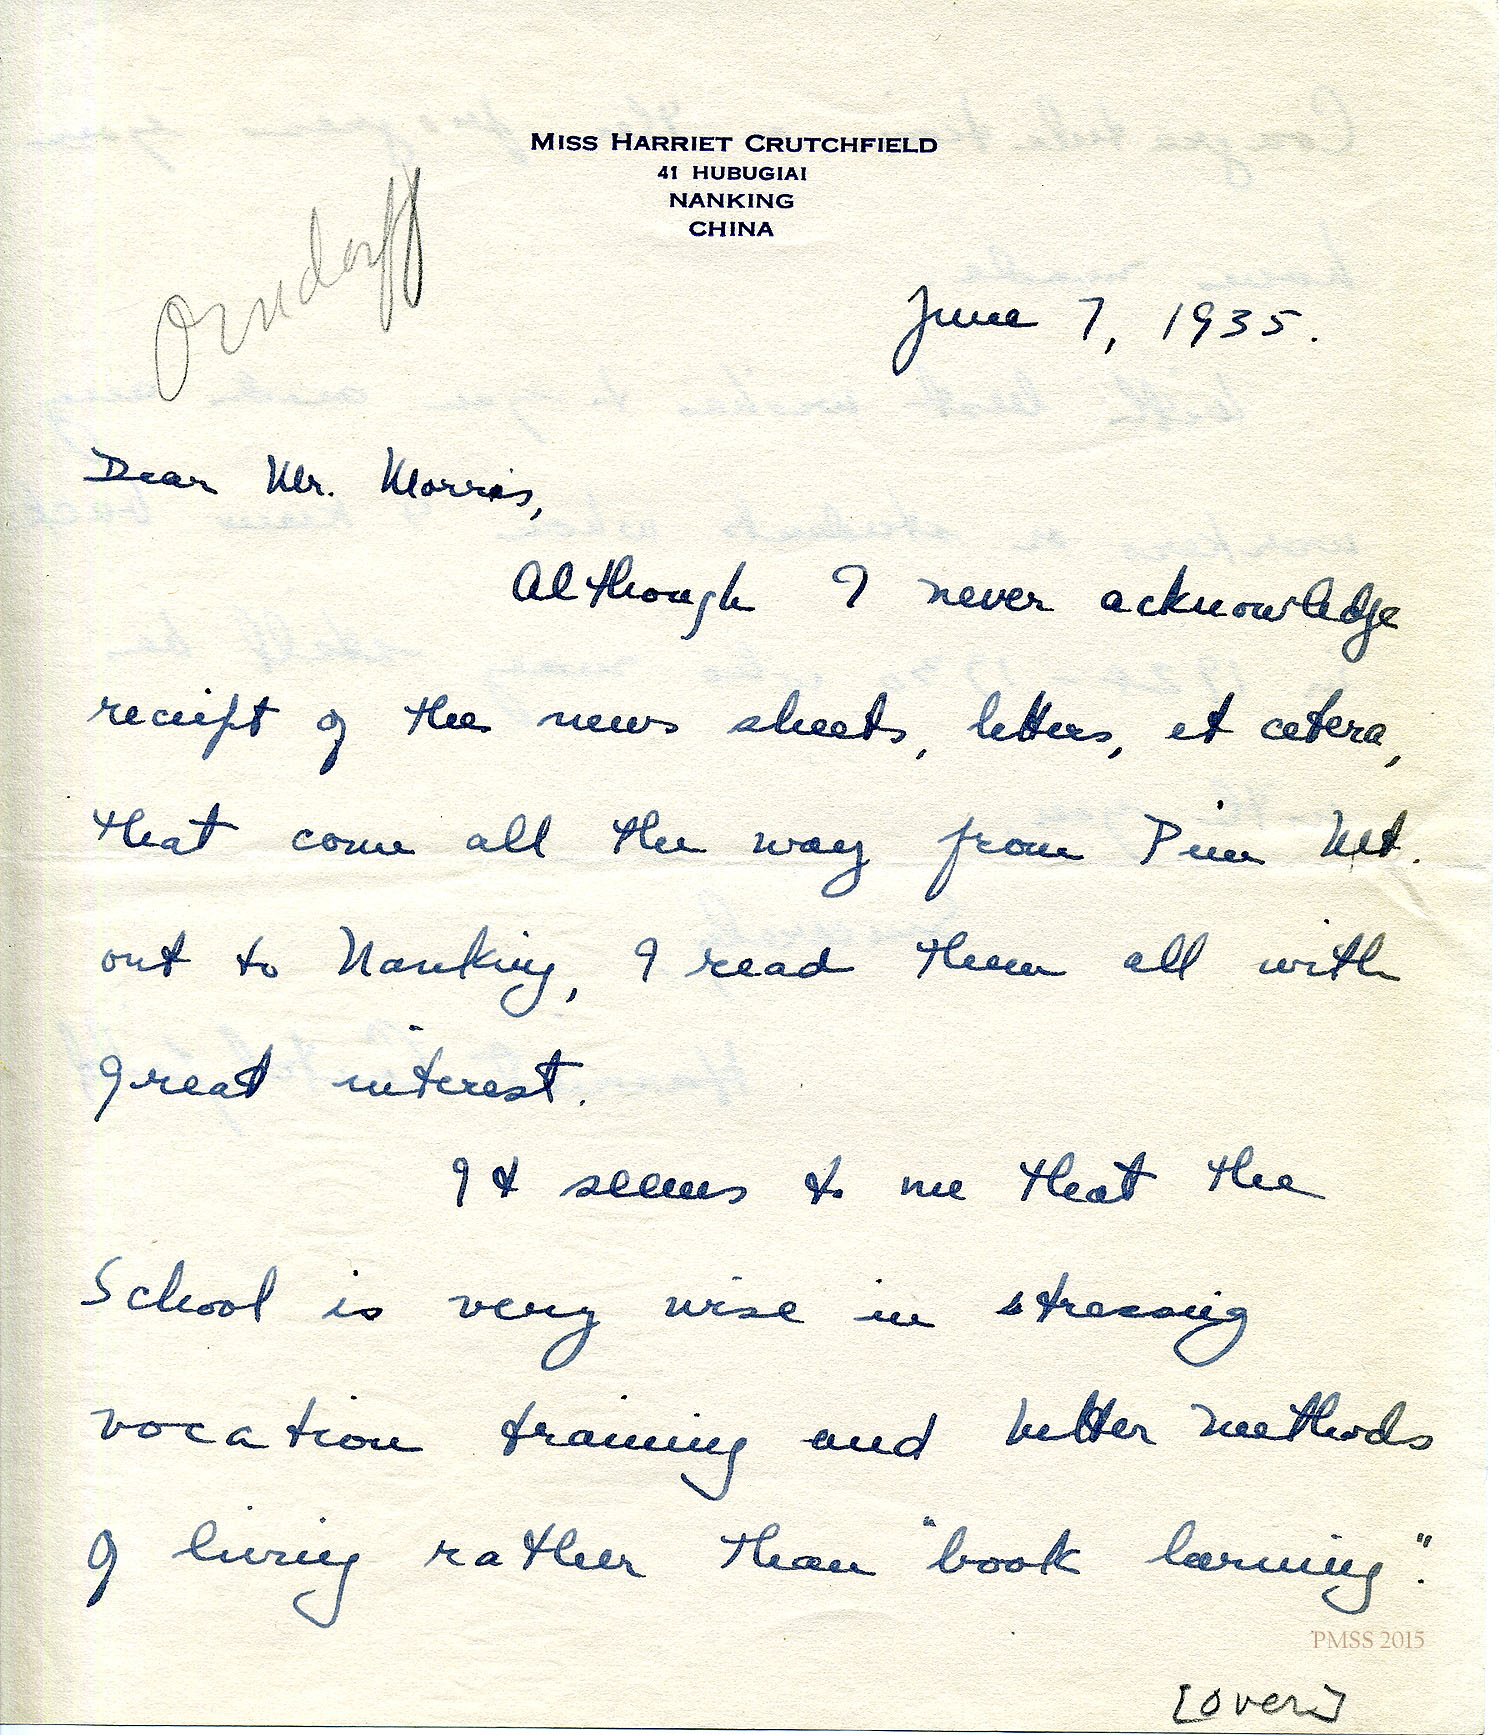 MISS HARRIET CRUTCHFIELD
41 HUBUGIAI
NANKING
CHINA
Orndorff
June 7, 1935.
Dear Mr. Morris,
Although I never acknowledge
receipt of the news sheets, letters, et cetera,
that come all the way from Pine Mt.
out to Nanking, I read them all with
great interest.
It seems to me that the
School is very wise in stressing
vocation training and better methods
of living rather than "book larning".
PMSS 2015
[over]